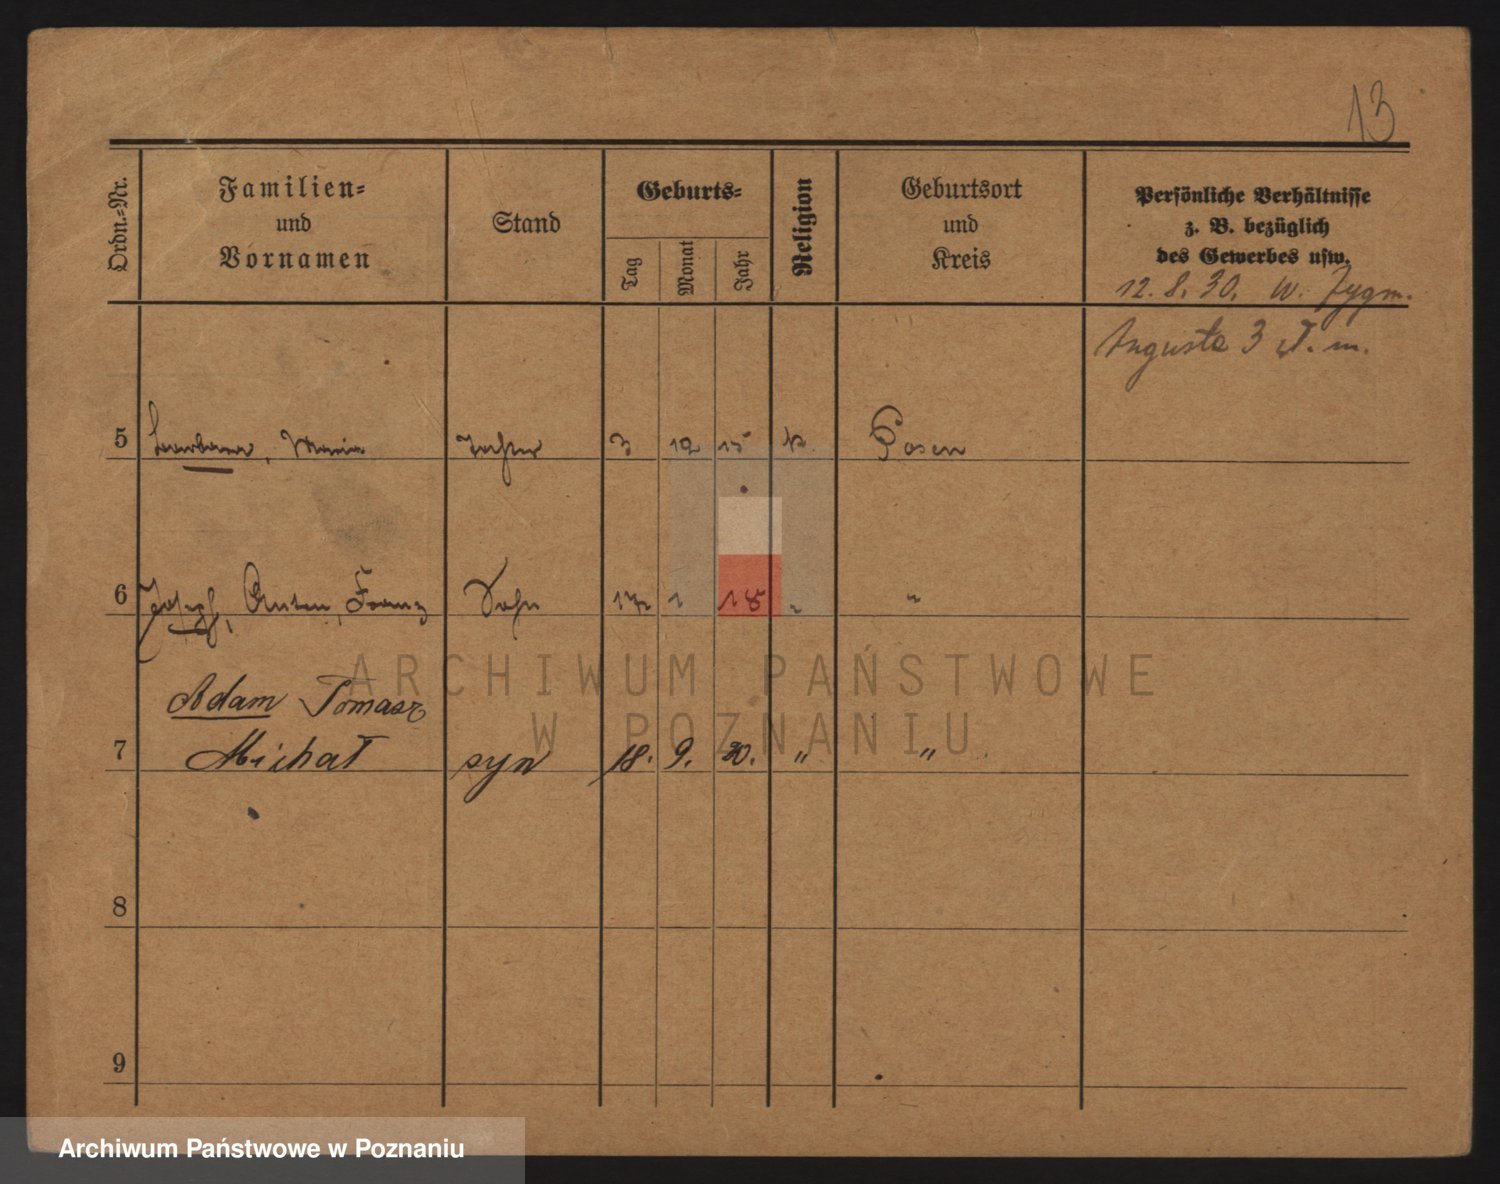 13
Ordn.=Nr.
Familien=
und
Vornamen
Stand
Geburts=
Tag
Monat
Jahr
Religion
Geburtsort
und
Kreis
Persönliche Verhältnisse
z. B. bezüglich
des Gewerbes usw.
12. 8. 30. W. Zygm.
Augusta 3 m.
5 Barbara, Maria Tochter 3 12 15 k. Posen
6 Joseph, Anton, Franz Sohn 17 1 18 " "
Adam Tomasz
7 Michał syn 18. 9. 20. " "
8
9
ARCHIWUM PAŃSTWOWE
W POZNANIU
Archiwum Państwowe w Poznaniu